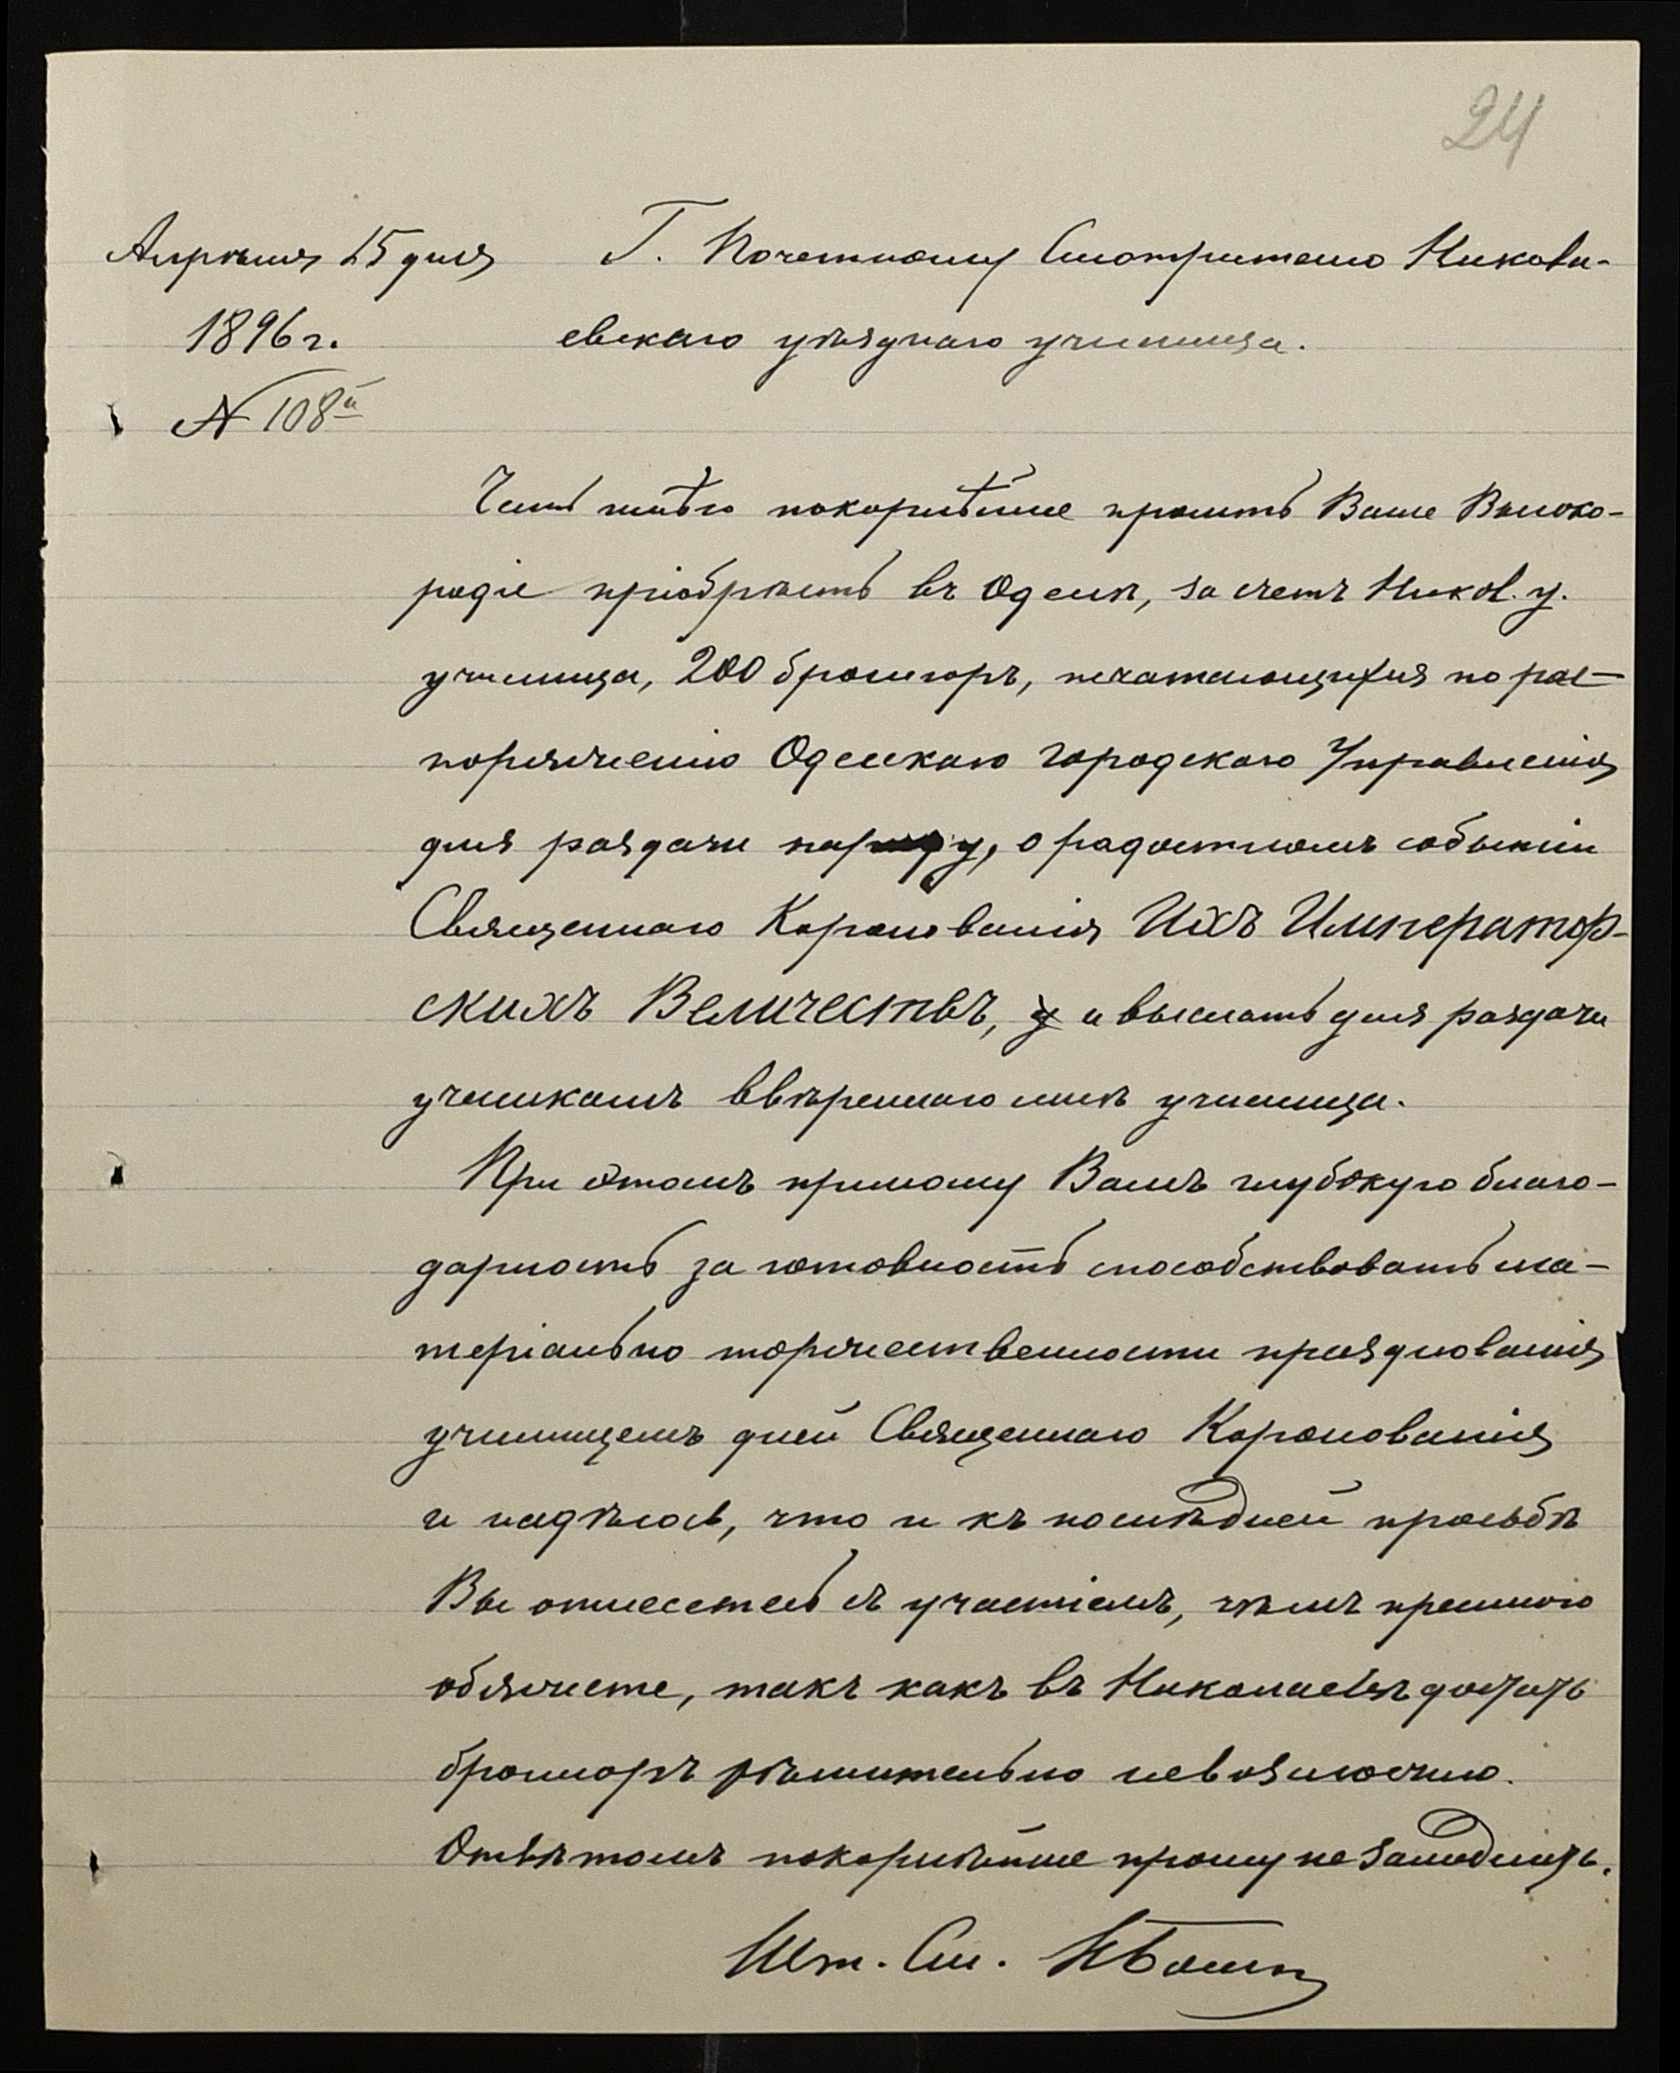 24
Апрѣля 15 дня
1896 г.
№ 108й
Г. Почетному Смотрителю Никола-
евскаго уѣзднаго училища.
Честь имѣю покорнѣйше просить Ваше Высоко-
родіе пріобрѣсть въ Одессѣ, за счетъ Никол. у.
училища, 200 брошюръ, печатающихся по рас-
поряженію Одесскаго городскаго Управленія
для раздачи народу, о радостномъ событіи
Священнаго Коронованія Ихъ Император-
скихъ Величествъ, и выслать для раздачи
ученикамъ ввѣреннаго мнѣ училища.
При этомъ приношу Вамъ глубокую благо-
дарность за готовность способствовать ма-
теріально торжественности празднованія
училищемъ дней Священнаго Коронованія
и надѣюсь, что и къ послѣдней просьбѣ
Вы отнесетесь съ участіемъ, чѣмъ премного
обяжете, такъ какъ въ Николаевѣ достать
брошюръ рѣшительно невозможно.
Отвѣтомъ покорнѣйше прошу не замедлить.
Шт. См.